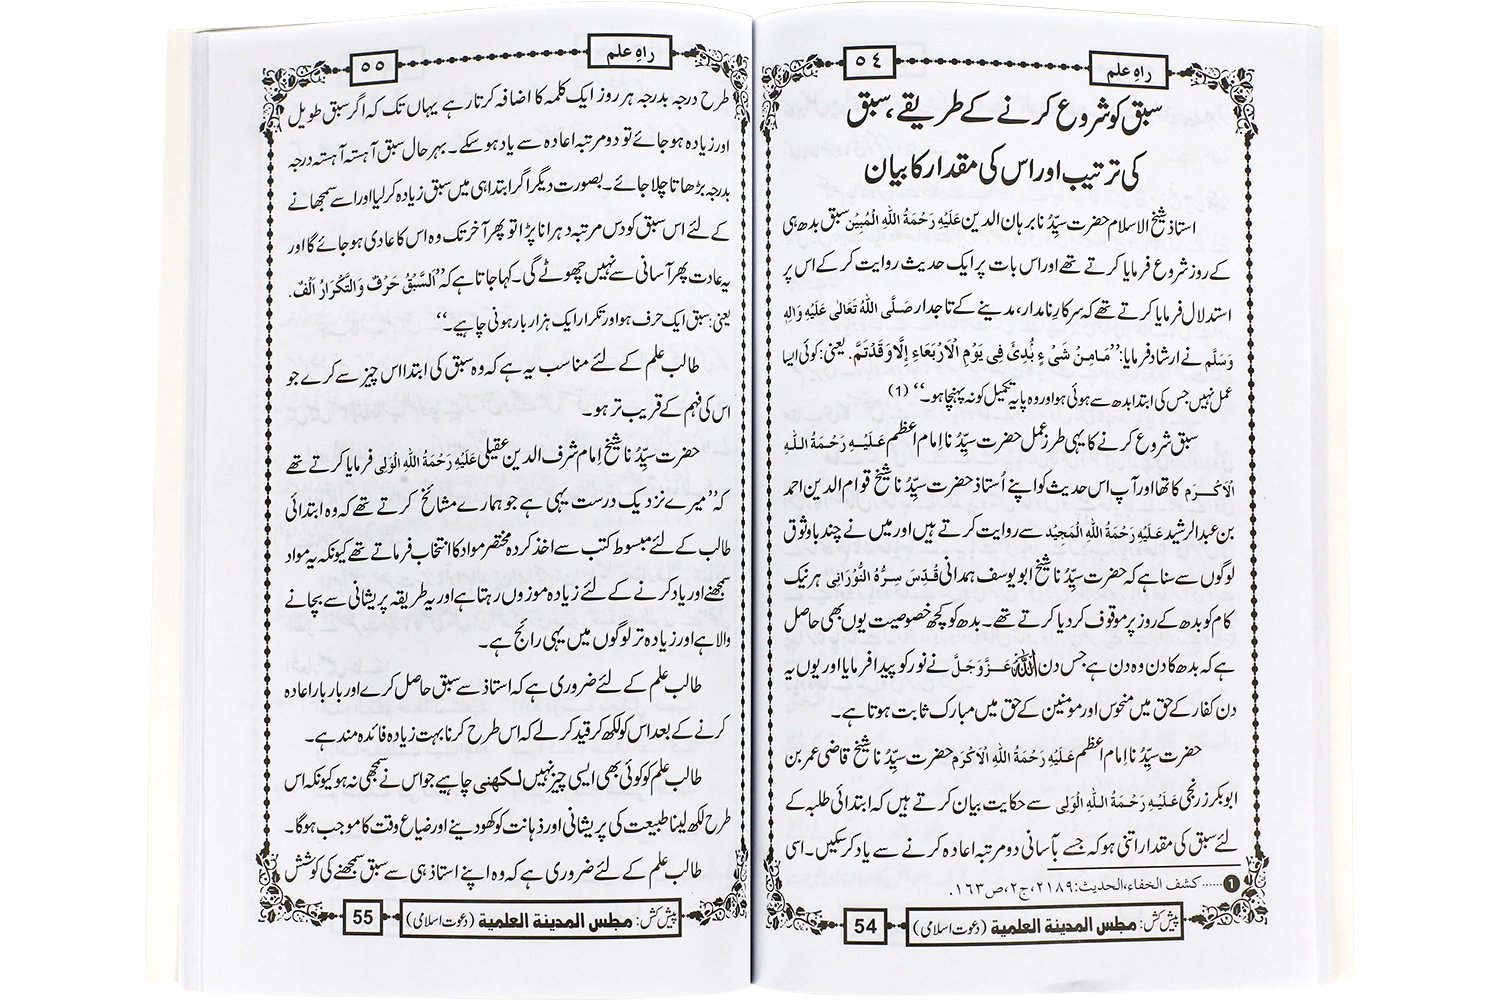 راہِ علم
٥٤
سبق کو شروع کرنے کے طریقے، سبق
کی ترتیب اور اس کی مقدار کا بیان
استاذ شیخ الاسلام حضرت سیِّدُنا برہان الدین عَلَیْہِ رَحْمَۃُ اللہِ الْمُبِیْن سبق بدھ ہی
کے روز شروع فرمایا کرتے تھے اور اس بات پر ایک حدیث روایت کر کے اس پر
استدلال فرمایا کرتے تھے کہ سرکارِ نامدار، مدینے کے تاجدار صَلَّی اللہُ تَعَالٰی عَلَیْہِ وَاٰلِہٖ
وَسَلَّم نے ارشاد فرمایا: ’’مَامِنْ شَیْ ءٍ بُدِئَ فِی یَوْمِ الْاَرْبَعَاءِ اِلَّا وَقَدْتَمَّ. یعنی: کوئی ایسا
عمل نہیں جس کی ابتدا بدھ سے ہوئی ہو اور وہ پایۂ تکمیل کو نہ پہنچا ہو۔‘‘ (1)
سبق شروع کرنے کا یہی طرز عمل حضرت سیِّدُنا اِمام اعظم عَلَیْہِ رَحْمَۃُ اللہِ
الْاَکْرَم کا تھا اور آپ اس حدیث کو اپنے اُستاذ حضرت سیِّدُنا شیخ قوام الدین احمد
بن عبدالرشید عَلَیْہِ رَحْمَۃُ اللہِ الْمَجِیْد سے روایت کرتے ہیں اور میں نے چند باوثوق
لوگوں سے سنا ہے کہ حضرت سیِّدُنا شیخ ابو یوسف ہمدانی قُدِّسَ سِرُّہُ النُّوْرَانِی ہر نیک
کام کو بدھ کے روز پر موقوف کر دیا کرتے تھے۔ بدھ کو کچھ خصوصیت یوں بھی حاصل
ہے کہ بدھ کا دن وہ دن ہے جس دن اللہ عَزَّوَجَلَّ نے نور کو پیدا فرمایا اور یوں یہ
دن کفار کے حق میں منحوس اور مومنین کے حق میں مبارک ثابت ہوتا ہے۔
حضرت سیِّدُنا اِمام اعظم عَلَیْہِ رَحْمَۃُ اللہِ الْاَکْرَم حضرت سیِّدُنا شیخ قاضی عمر بن
ابوبکر زرنجی عَلَیْہِ رَحْمَۃُ اللہِ الْوَلِی سے حکایت بیان کرتے ہیں کہ ابتدائی طلبہ کے
لئے سبق کی مقدار اتنی ہو کہ جسے بآسانی دو مرتبہ اعادہ کرنے سے یاد کر سکیں۔ اسی
1 ...... کشف الخفاء، الحدیث: ٢١٨٩، ج٢، ص ١٦٣.
پیش کش: مجلس المدینۃ العلمیۃ (دعوت اسلامی)
54
راہِ علم
٥٥
طرح درجہ بدرجہ ہر روز ایک کلمہ کا اضافہ کرتا رہے یہاں تک کہ اگر سبق طویل
اور زیادہ ہو جائے تو دو مرتبہ اعادہ سے یاد ہو سکے۔ بہر حال سبق آہستہ آہستہ درجہ
بدرجہ بڑھاتا چلا جائے۔ بصورت دیگر اگر ابتدا ہی میں سبق زیادہ کر لیا اور اسے سمجھانے
کے لئے اس سبق کو دس مرتبہ دہرانا پڑا تو پھر آخر تک وہ اس کا عادی ہو جائے گا اور
یہ عادت پھر آسانی سے نہیں چھوٹے گی۔ کہا جاتا ہے کہ ’’اَلسَّبْقُ حَرْفٌ وَالتَّکْرَارُ اَلْفٌ.
یعنی: سبق ایک حرف ہو اور تکرار ایک ہزار بار ہونی چاہیے۔‘‘
طالب علم کے لئے مناسب یہ ہے کہ وہ سبق کی ابتدا اس چیز سے کرے جو
اس کی فہم کے قریب تر ہو۔
حضرت سیِّدُنا شیخ اِمام شرف الدین عقیلی عَلَیْہِ رَحْمَۃُ اللہِ الْوَلِی فرمایا کرتے تھے
کہ ’’میرے نزدیک درست یہی ہے جو ہمارے مشائخ کرتے تھے کہ وہ ابتدائی
طالب کے لئے مبسوط کتب سے اخذ کردہ مختصر مواد کا انتخاب فرماتے تھے کیونکہ یہ مواد
سمجھنے اور یاد کرنے کے لئے زیادہ موزوں رہتا ہے اور یہ طریقہ پریشانی سے بچانے
والا ہے اور زیادہ تر لوگوں میں یہی رائج ہے۔
طالب علم کے لئے ضروری ہے کہ استاذ سے سبق حاصل کرے اور بار بار اعادہ
کرنے کے بعد اس کو لکھ کر قید کر لے کہ اس طرح کرنا بہت زیادہ فائدہ مند ہے۔
طالب علم کو کوئی بھی ایسی چیز نہیں لکھنی چاہیے جو اس نے سمجھی نہ ہو کیونکہ اس
طرح لکھ لینا طبیعت کی پریشانی اور ذہانت کو کھو دینے اور ضیاع وقت کا موجب ہوگا۔
طالب علم کے لئے ضروری ہے کہ وہ اپنے استاذ ہی سے سبق سمجھنے کی کوشش
پیش کش: مجلس المدینۃ العلمیۃ (دعوت اسلامی)
55